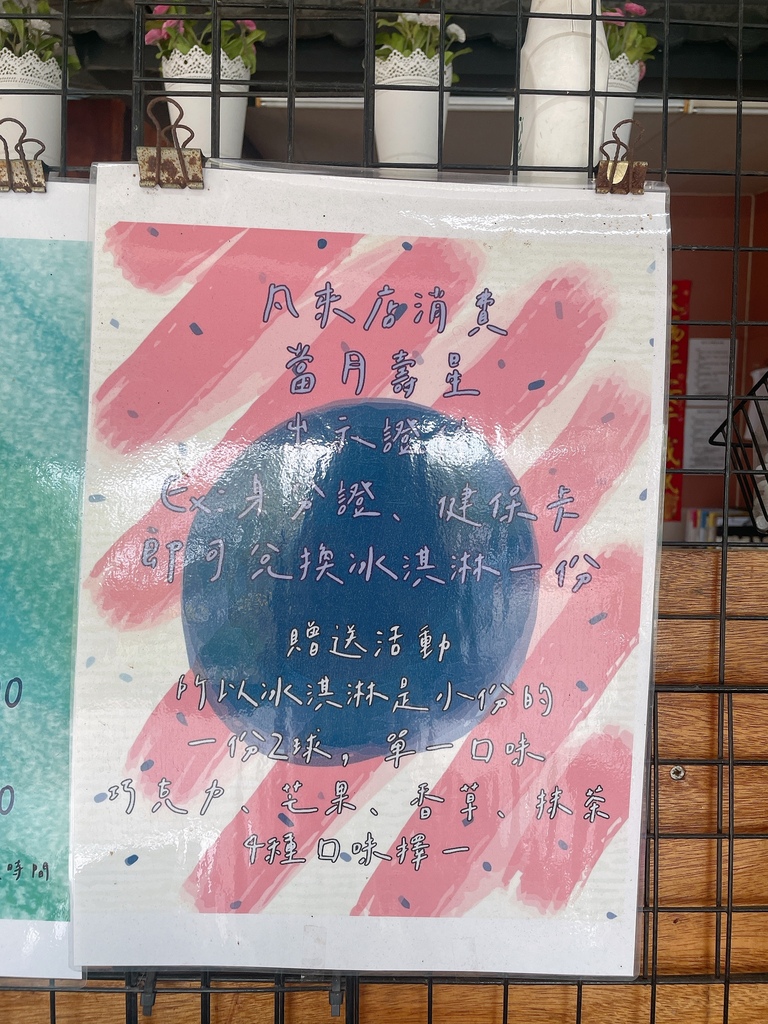 凡來店消費
當月壽星
出示證
Ex:身分證、健保卡
即可兌換冰淇淋一份
贈送活動
所以冰淇淋是小份的
一份2球,單一口味
巧克力、芒果、香草、抹茶
4種口味擇一
0
0
時間